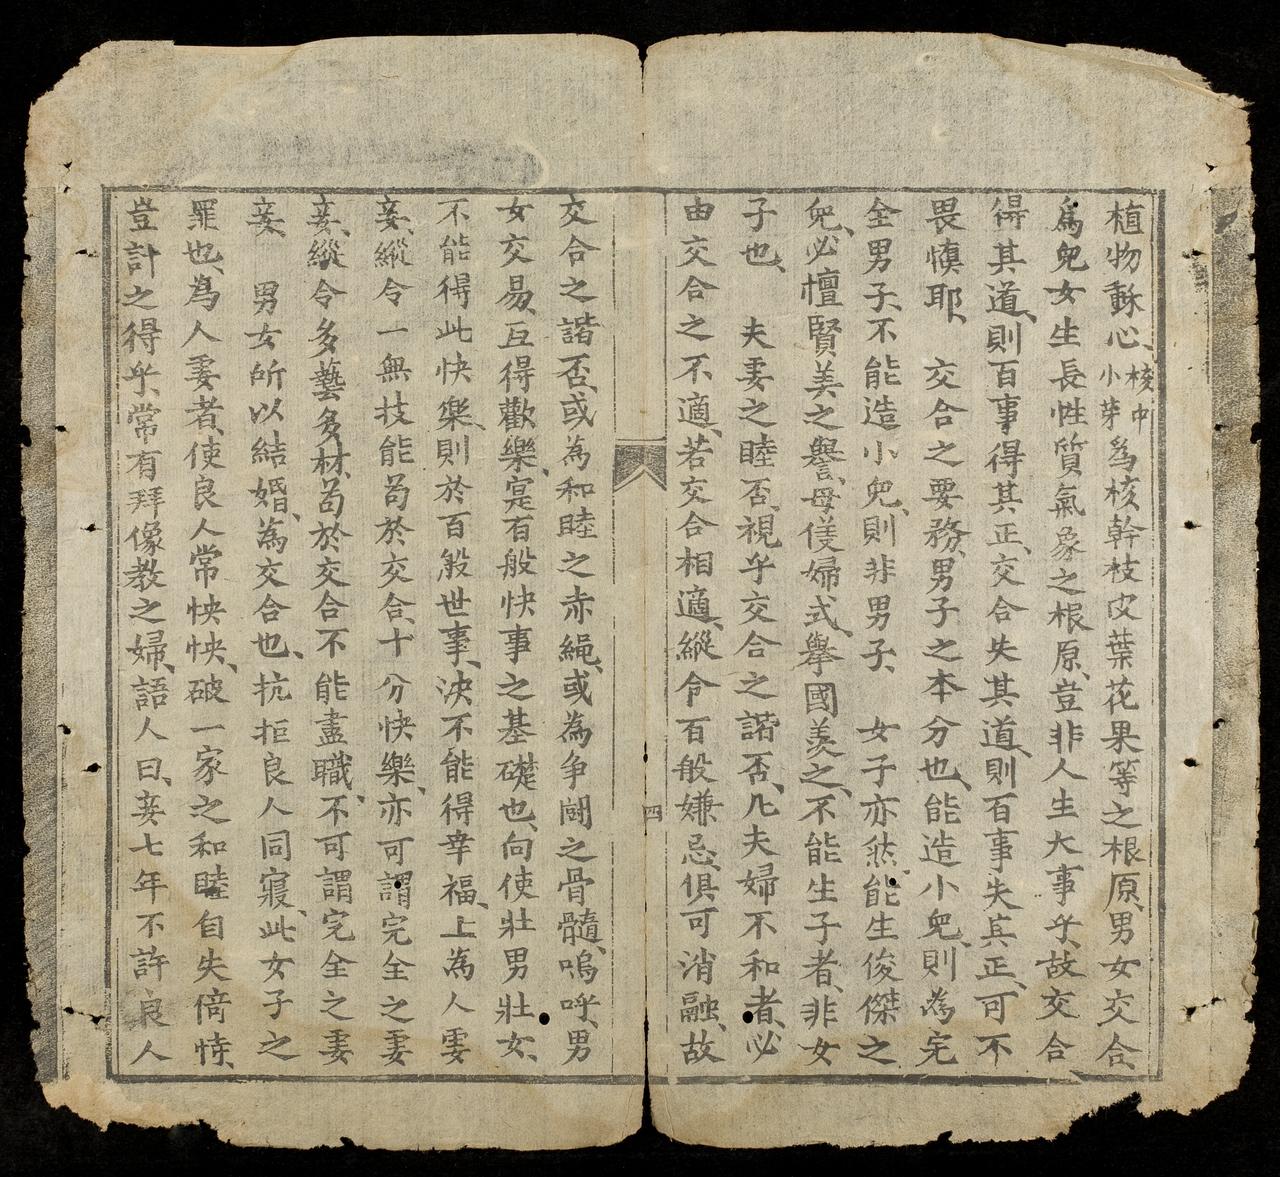 植物穌心、核中小芽為核幹枝皮葉花果等之根原、男女交合、
為兒女生長性質氣象之根原、豈非人生大事乎、故交合
得其道、則百事得其正、交合失其道、則百事失其正、可不
畏慎耶、　交合之要務、男子之本分也、能造小兒、則為完
全男子、不能造小兒、則非男子、　女子亦然、能生俊傑之
兒、必擅賢美之譽、母儀婦式、舉國羨之、不能生子者、非女
子也、　夫妻之睦否、視乎交合之諧否、凡夫婦不和者、必
由交合之不適、若交合相適、縱令百般嫌忌、俱可消融、故
四
交合之諧否、或為和睦之赤繩、或為争鬪之骨髓、嗚呼、男
女交易、互得歡樂、寔百般快事之基礎也、向使壯男壯女、
不能得此快樂、則於百般世事、決不能得幸福、上為人妻
妾、縱令一無技能、苟於交合、十分快樂、亦可謂完全之妻
妾、縱令多藝多材、苟於交合不能盡職、不可謂完全之妻
妾、　男女所以結婚、為交合也、抗拒良人同寢、此女子之
罪也、為人妻者、使良人常怏怏、破一家之和睦、自失倚恃、
豈計之得乎、常有拜像教之婦、語人曰、妾七年不許良人